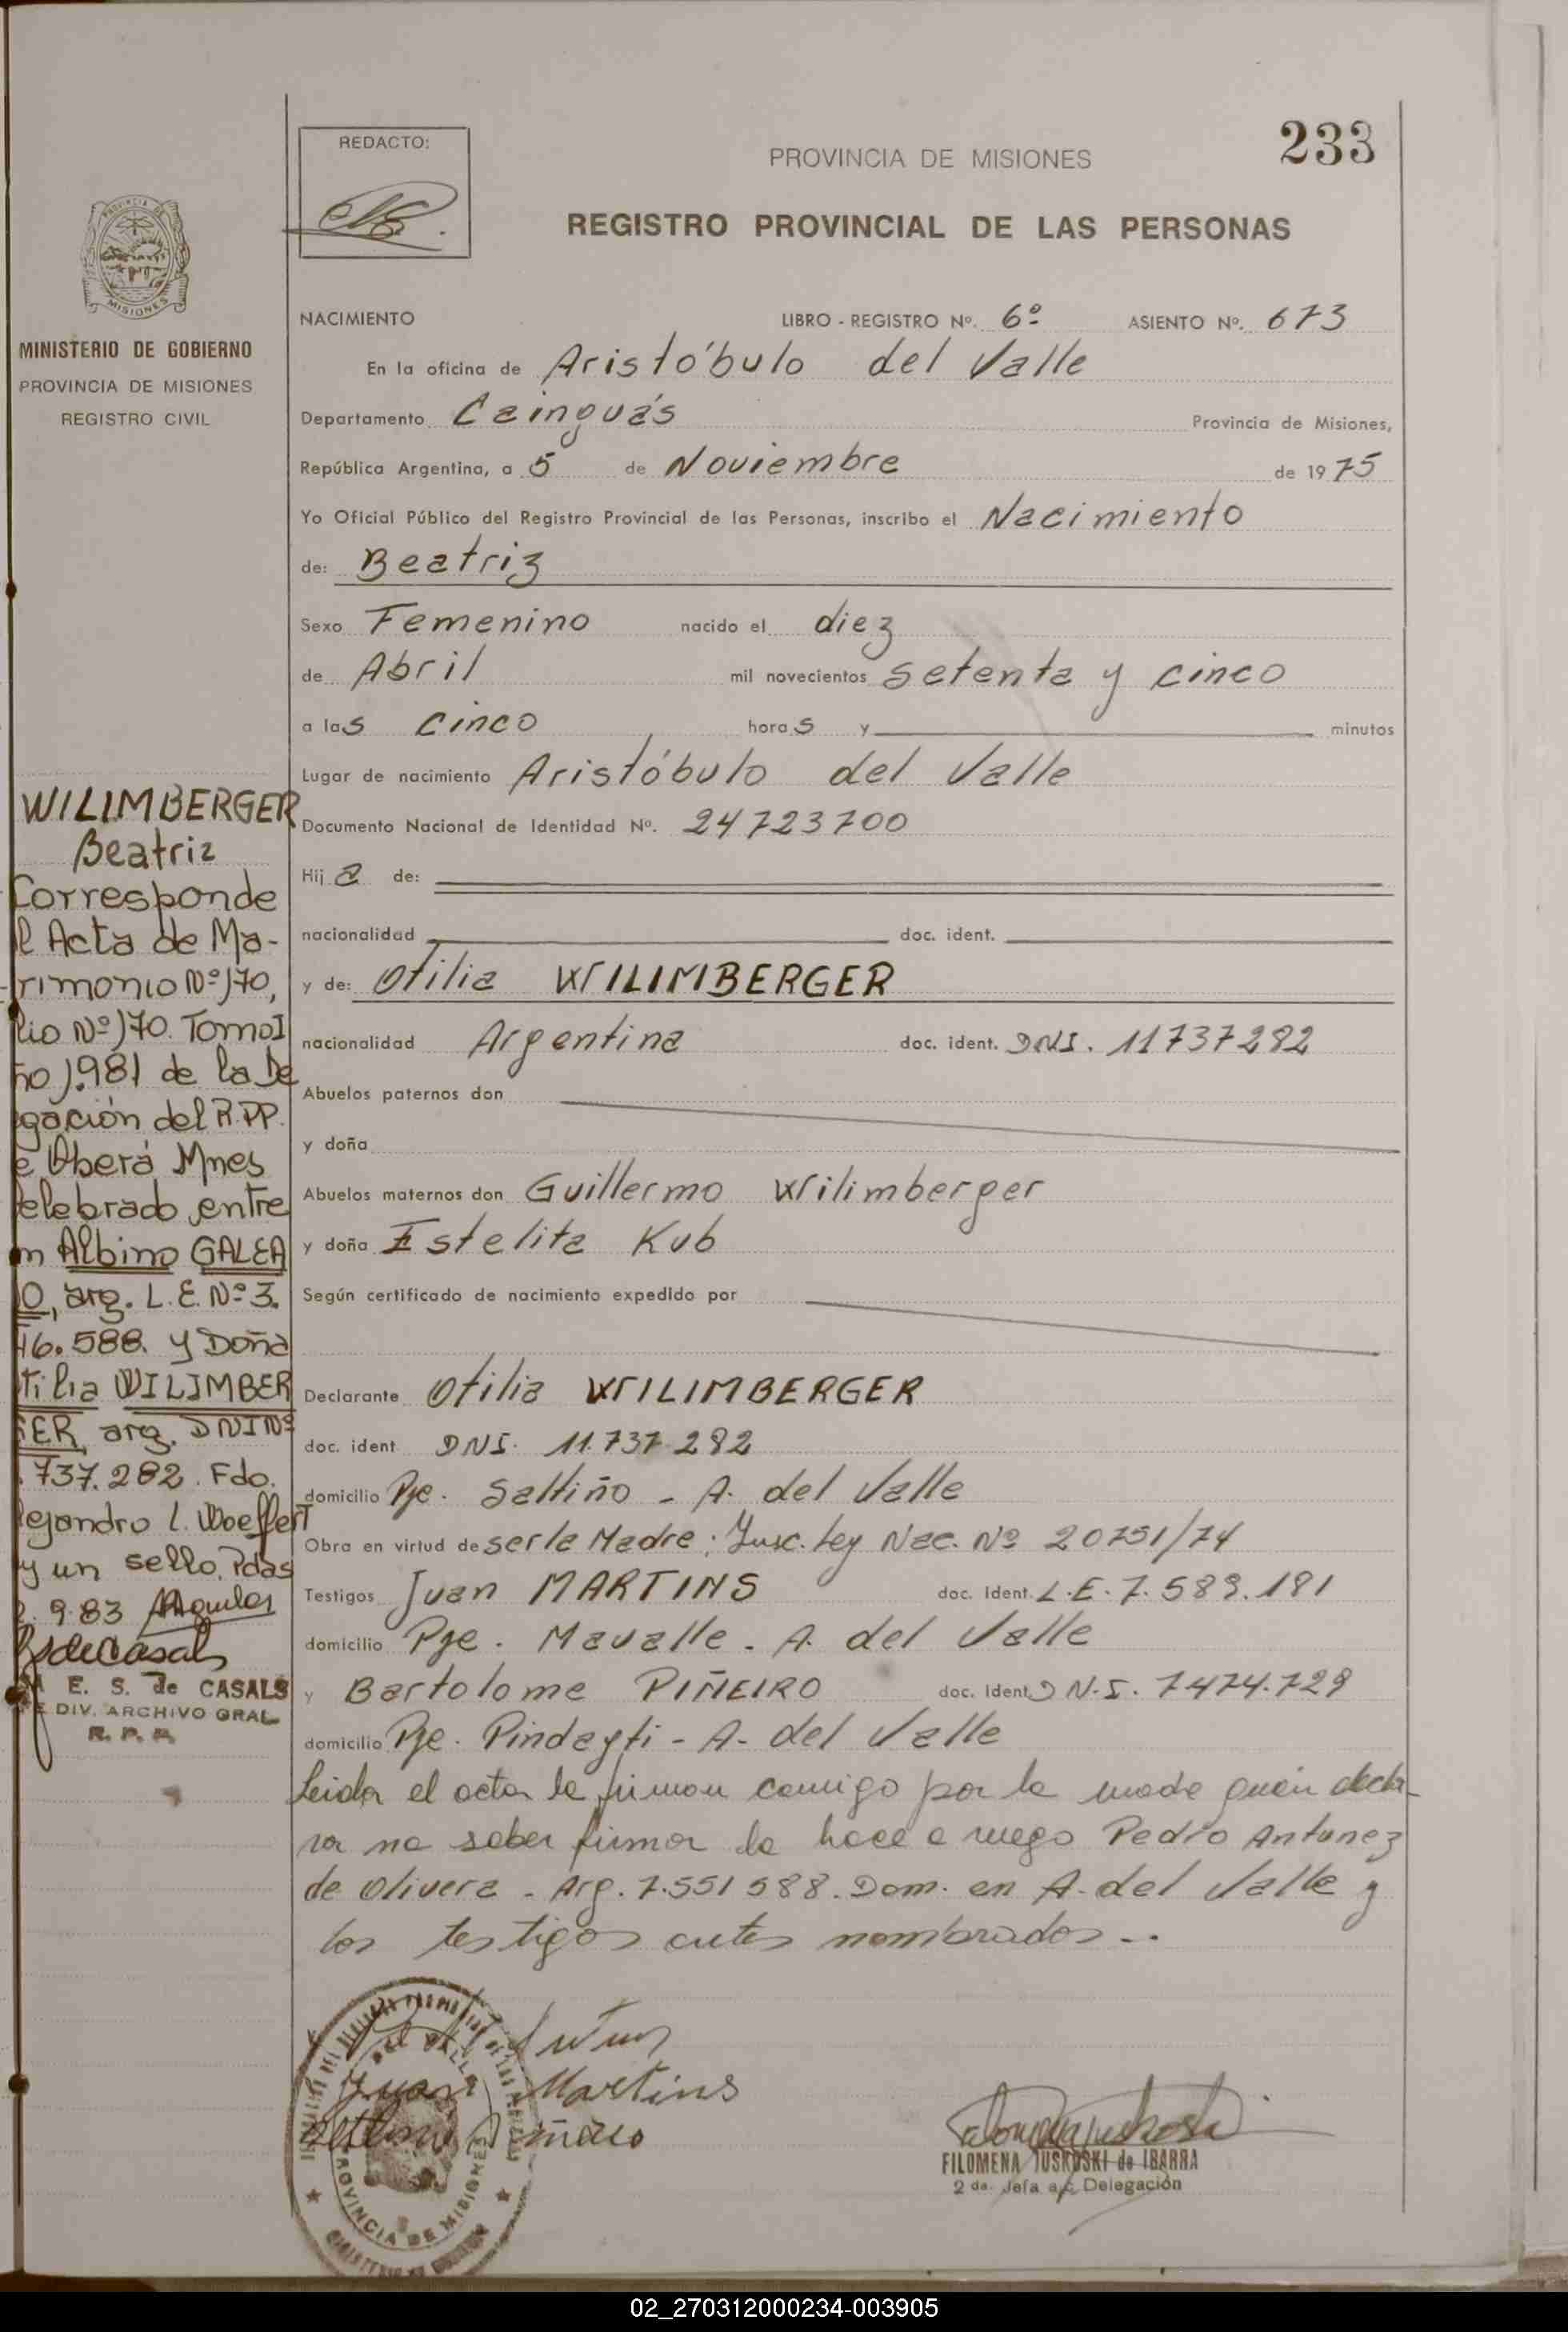 233
REDACTO:
PROVINCIA DE MISIONES
REGISTRO PROVINCIAL DE LAS PERSONAS
PROVINCIA DE
MISIONES
MINISTERIO DE GOBIERNO
PROVINCIA DE MISIONES
REGISTRO CIVIL
NACIMIENTO LIBRO - REGISTRO Nº. 6º ASIENTO Nº. 673
En la oficina de Aristóbulo del Valle
Departamento Cainguás Provincia de Misiones,
República Argentina, a 5 de Noviembre de 1975
Yo Oficial Público del Registro Provincial de las Personas, inscribo el Nacimiento
de: Beatriz
Sexo Femenino nacido el diez
de Abril mil novecientos setenta y cinco
a las cinco horas y minutos
Lugar de nacimiento Aristóbulo del Valle
Documento Nacional de Identidad Nº. 24723700
Hija de:
nacionalidad doc. ident.
y de: Otilia WILIMBERGER
nacionalidad Argentina doc. ident. DNI. 11737282
Abuelos paternos don
y doña
Abuelos maternos don Guillermo Wilimberger
y doña Estelita Kub
Según certificado de nacimiento expedido por
Declarante Otilia WILIMBERGER
doc. ident DNI. 11.737.282
domicilio Pje. Saltiño - A. del Valle
Obra en virtud de ser la Madre; Insc. Ley Nac. Nº 20751/74
Testigos Juan MARTINS doc. ident. L.E. 7.589.181
domicilio Pje. Mavalle - A. del Valle
y Bartolome PIÑEIRO doc. ident. D N.I. 7474.729
domicilio Pje. Pindayti - A. del Valle
Leida el acta la firman comigo por la madre quien decla-
ra no saber firmar lo hace a ruego Pedro Antunez
de Olivera - Arg. 7.551588. Dom. en A. del Valle y
los testigos antes nombrados -.
WILIMBERGER
Beatriz
Corresponde
l Acta de Ma-
trimonio Nº 170,
lio Nº 170. Tomo I
ño 1.981 de la De
gación del R.PP.
e Oberá Mnes
elebrado entre
n Albino GALEA
O, arg. L.E. Nº 3.
16.588. y Doña
tilia WILIMBER
GER, arg. DNI Nº
.737.282. Fdo.
lejandro L. Woeffert
y un sello. Pdas
9.83
E. S. de CASALS
DIV. ARCHIVO GRAL
R. P. P.
Juan Martins
PROVINCIA DE MISIONES
FILOMENA JUSKOSKI de IBARRA
2 da. Jefa a/c Delegación
02_270312000234-003905